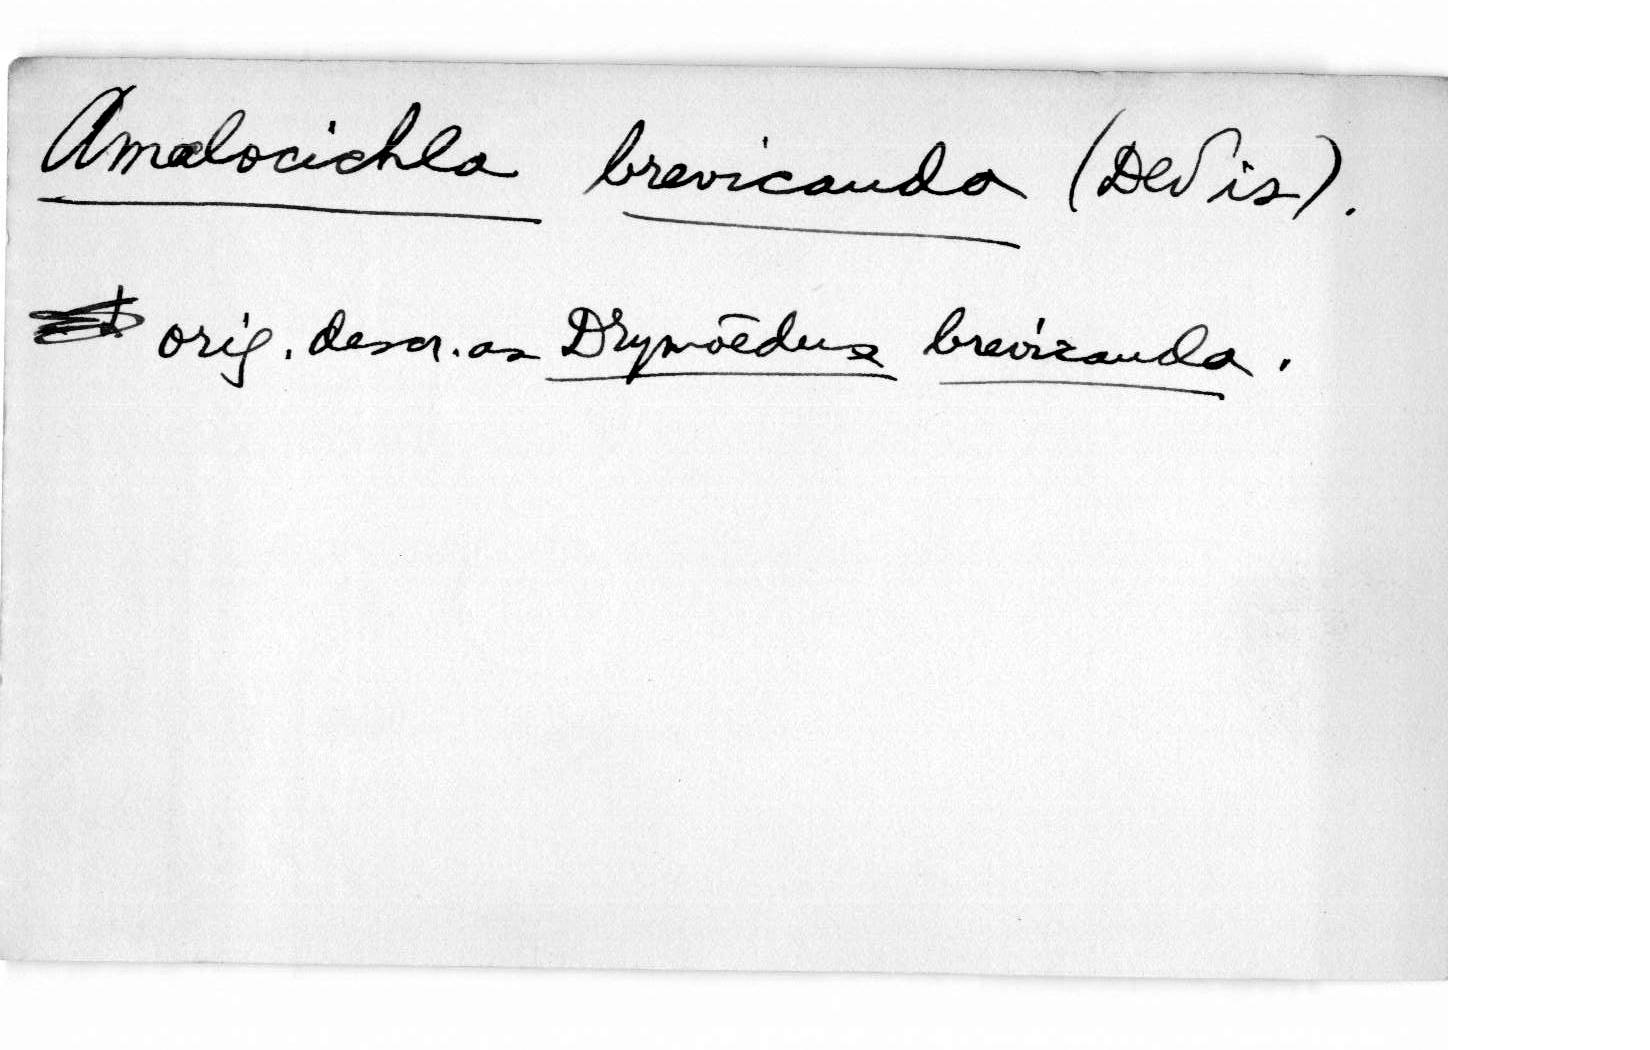 Amalocichla brevicauda (DeVis).
orig. descr. as Drymōedus brevicauda.